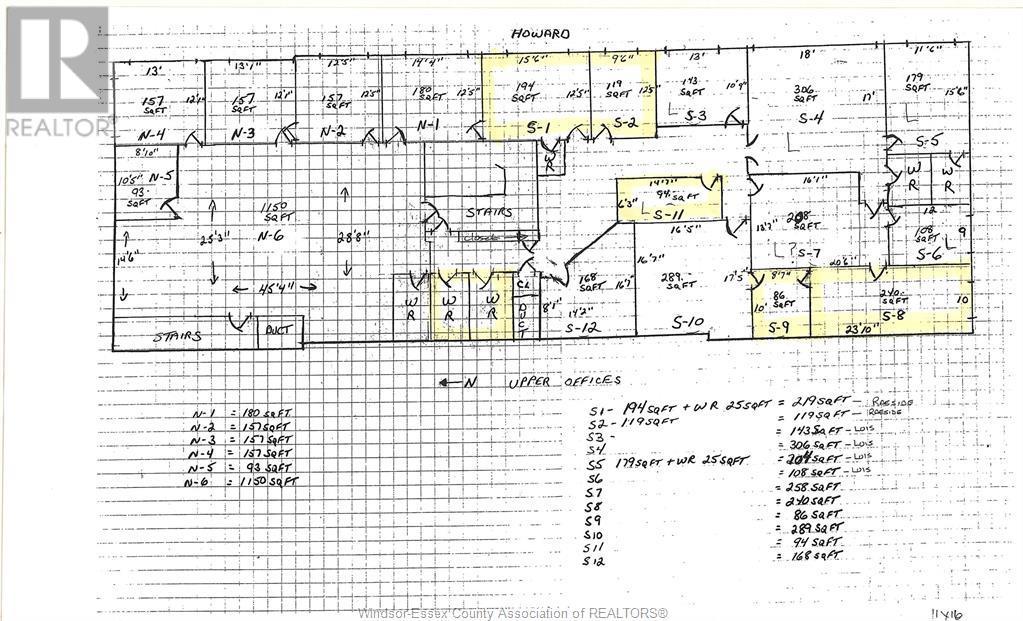 HOWARD
R
REALTOR
13' 13'1" 12'5" 14'4" 15'6" 9'6" 13' 18' 11'6"
157 SQFT 12'1" N-4
157 SQFT 12'1" N-3
157 SQFT 12'5" N-2
180 SQFT 12'5" N-1
194 SQFT 12'5" S-1
119 SQFT 12'5" S-2
143 SQFT 10'9" L S-3
306 SQFT 17' L S-4
179 SQFT 15'6" L S-5
8'10" N-5
10'5" 93 SQFT
WR
WR WR
14'7" 94 SQFT
6'3" L S-11
16'1"
13'7" 208 SQFT
L? S-7
12
108 SQFT L 9
S-6
1150 SQFT
25'3" N-6 28'8"
14'6"
45'4"
STAIRS
CLOSET
16'5"
16'7"
289 SQFT 17'5"
S-10
168 SQFT 16'7"
8'1" 14'2"
S-12
CL
DUCT
WR WR WR
8'7"
86 SQFT
10'
S-9
20'6"
240 SQFT 10
S-8
23'10"
STAIRS DUCT
←N UPPER OFFICES
N-1 = 180 SQFT
N-2 = 157 SQFT
N-3 = 157 SQFT
N-4 = 157 SQFT
N-5 = 93 SQFT
N-6 = 1150 SQFT
S1- 194 SQFT + WR 25 SQFT = 219 SQFT -
S2 - 119 SQFT = 119 SQFT -
S3 - = 143 SQFT - LOIS
S4 = 306 SQFT - LOIS
S5 179 SQFT + WR 25 SQFT = 204 SQFT - LOIS
S6 = 108 SQFT - LOIS
S7 = 258 SQFT
S8 = 240 SQFT
S9 = 86 SQFT
S10 = 289 SQFT
S11 = 94 SQFT
S12 = 168 SQFT
Windsor-Essex County Association of REALTORS®
11X16